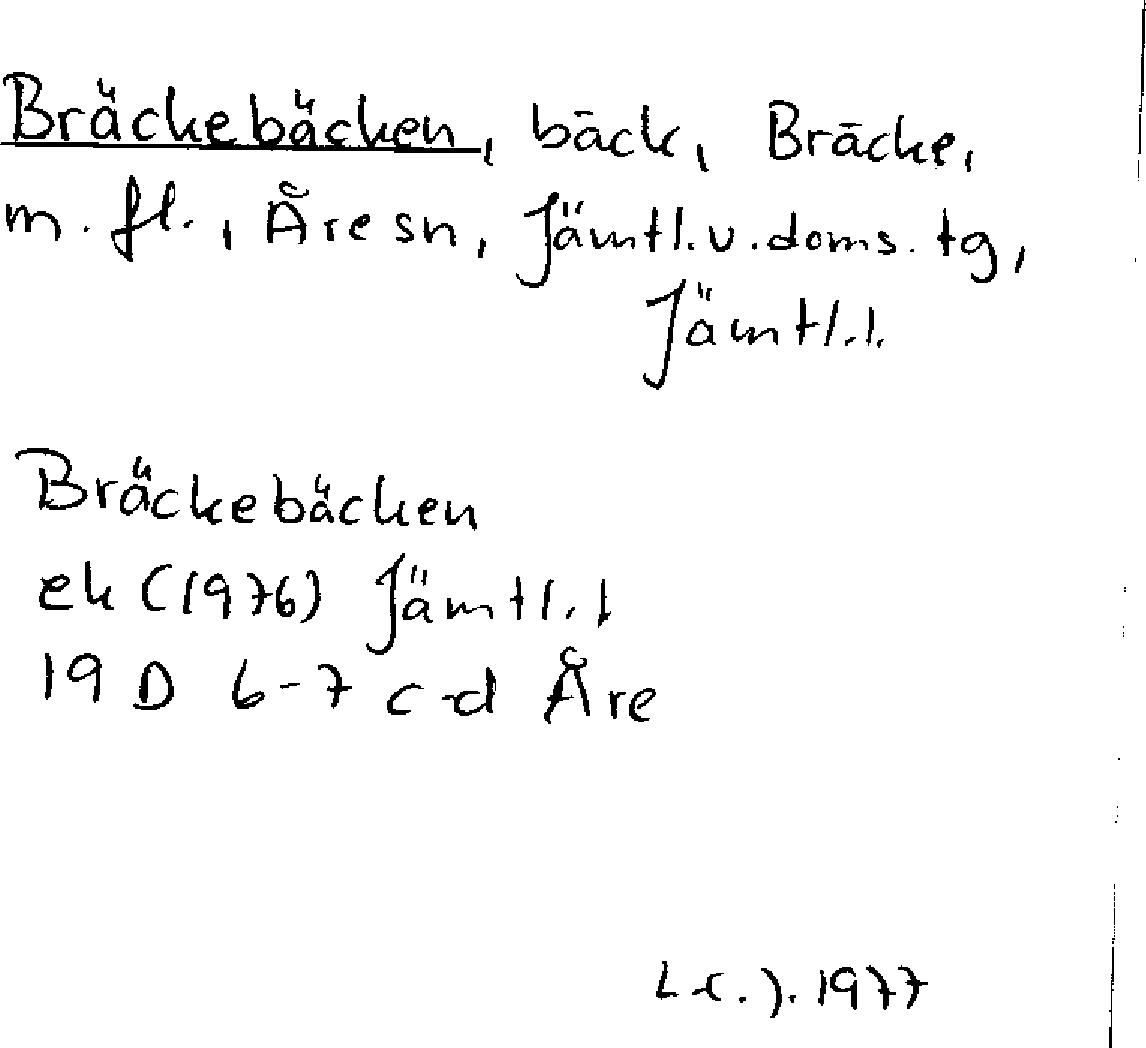 Bräckebäcken, bäck, Bräcke,
m. fl., Åre sn, Jämtl.v.doms.tg,
Jämtl.l.
Bräckebäcken
ek (1976) Jämtl.l
19 D 6-7 c-d Åre
1977